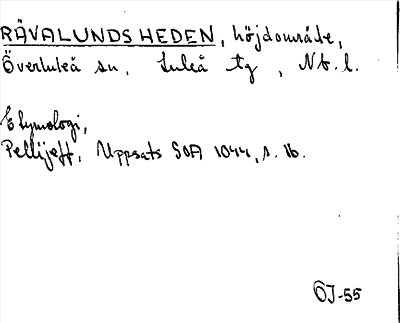 RÄVALUNDSHEDEN, höjdområde,
Överluleå sn, Luleå tg, Nb. l.
Etymologi,
Pellijeff, Uppsats SOA 1044, s. 16.
ÖJ-55